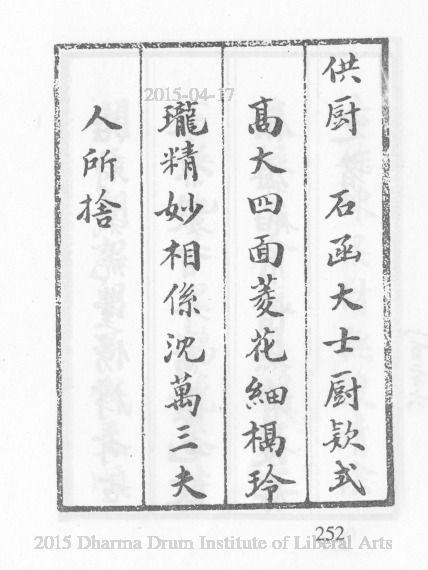 供厨　石函大士厨欵式
高大四面菱花細槅玲
瓏精妙相係沈萬三夫
人所捨
2015-04-17
252
2015 Dharma Drum Institute of Liberal Arts